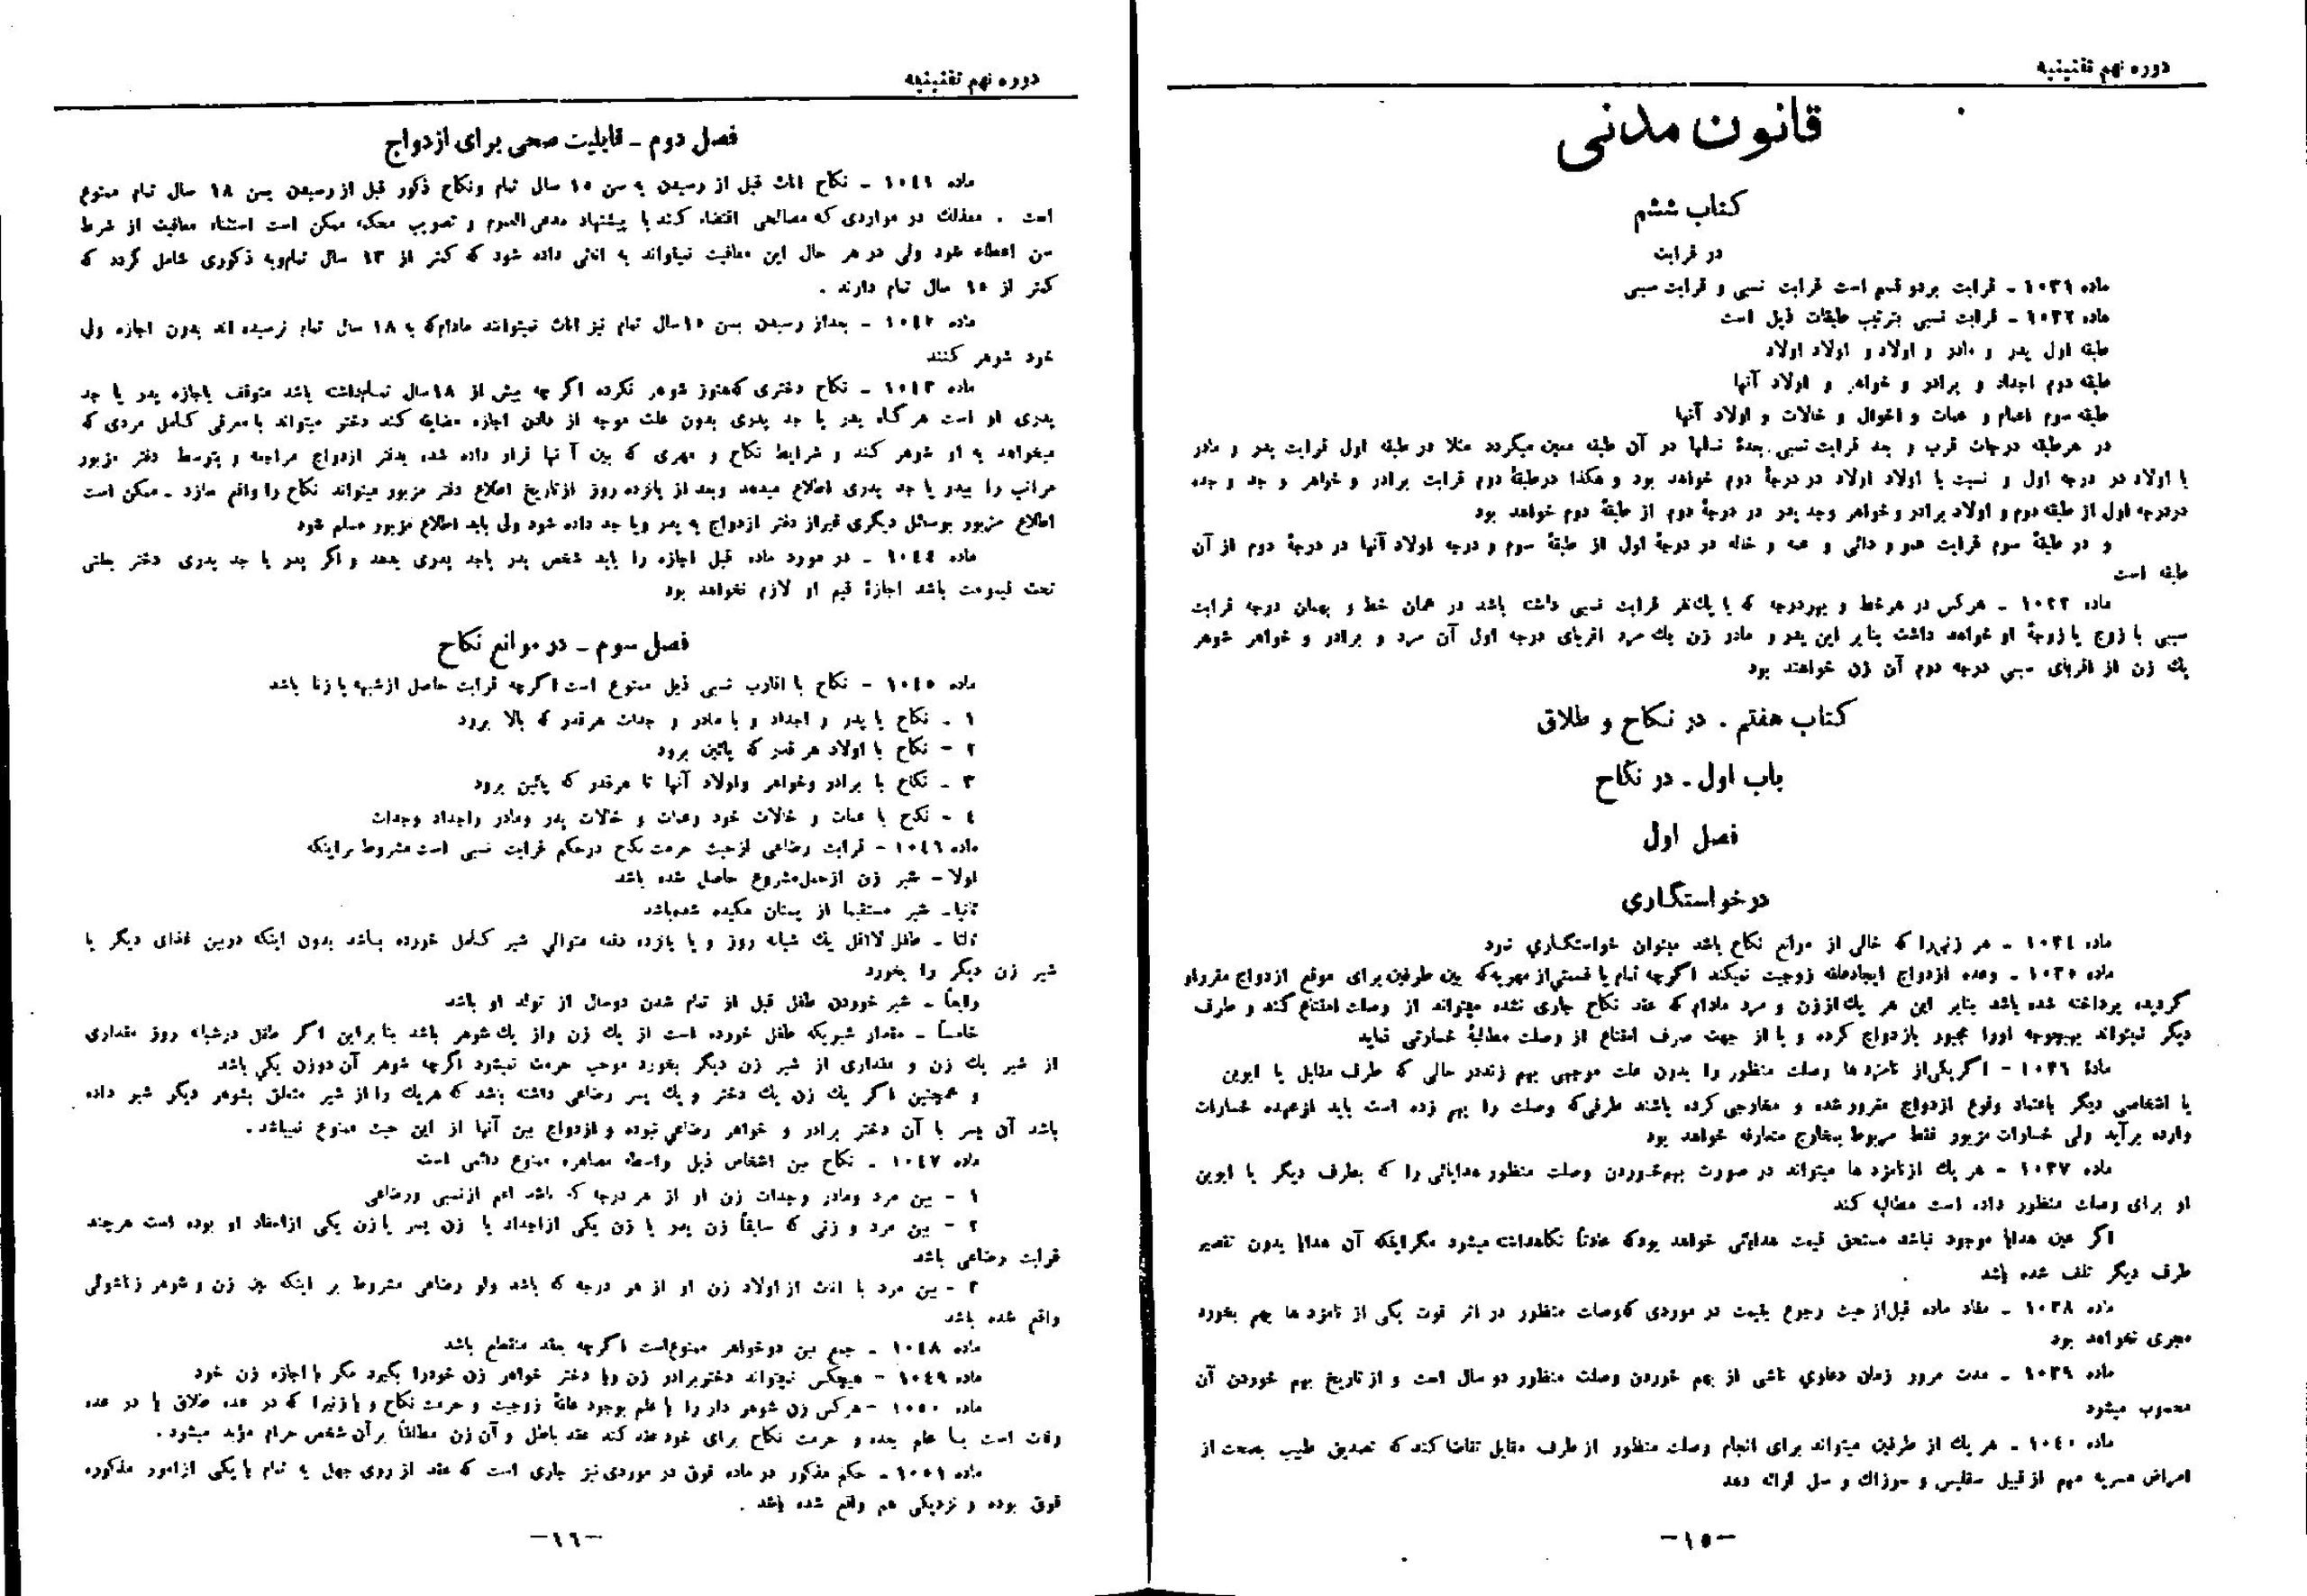 دوره نهم تقنینیه
قانون مدنی
کتاب ششم
در قرابت
ماده ۱۰۳۱ - قرابت بردو قسم است قرابت نسبی و قرابت سببی
ماده ۱۰۳۲ - قرابت نسبی بترتیب طبقات ذیل است
طبقه اول پدر و مادر و اولاد و اولاد اولاد
طبقه دوم اجداد و برادر و خواهر و اولاد آنها
طبقه سوم اعمام و عمات و اخوال و خالات و اولاد آنها
در هرطبقه درجات قرب و بعد قرابت نسبی بعدهٔ نسلها در آن طبقه معین میگردد مثلا در طبقه اول قرابت پدر و مادر
با اولاد در درجه اول و نسبت با اولاد اولاد در درجهٔ دوم خواهد بود و هکذا درطبقهٔ دوم قرابت برادر و خواهر و جد و جده
دردرجه اول از طبقه دوم و اولاد برادر و خواهر وجد پدر در درجهٔ دوم از طبقهٔ دوم خواهد بود
و در طبقهٔ سوم قرابت عمو و دائی و عمه و خاله در درجهٔ اول از طبقهٔ سوم و درجه اولاد آنها در درجهٔ دوم از آن
طبقه است
ماده ۱۰۳۳ - هرکس در هرخط و بهردرجه که با یك‌نفر قرابت نسبی داشته باشد در همان خط و بهمان درجه قرابت
سببی با زوج یا زوجهٔ او خواهد داشت بنا بر این پدر و مادر زن یك مرد اقربای درجه اول آن مرد و برادر و خواهر شوهر
یك زن از اقربای سببی درجه دوم آن زن خواهند بود
کتاب هفتم . در نکاح و طلاق
باب اول - در نکاح
فصل اول
درخواستگاری
ماده ۱۰۳٤ - هر زنی‌را که خالی از موانع نکاح باشد میتوان خواستگاری نمود
ماده ۱۰۳۵ - وعده ازدواج ایجادعلقه زوجیت نمیکند اگرچه تمام یا قسمتی‌از مهریه‌که بین طرفین برای موقع ازدواج مقرراو
گردیده پرداخته شده باشد بنابر این هر یك‌اززن و مرد مادام که عقد نکاح جاری نشده میتواند از وصلت امتناع کند و طرف
دیگر نمیتواند بهیچوجه اورا مجبور بازدواج کرده و یا از جهت صرف امتناع از وصلت مطالبهٔ خسارتی نماید
مادهٔ ۱۰۳٦ - اگریکی‌از نامزدها وصلت منظور را بدون علت موجهی بهم زنددر حالی که طرف مقابل یا ابوین
یا اشخاصی دیگر باعتماد وقوع ازدواج مغرورشده و مخارجی کرده باشند طرفی‌که وصلت را بهم زده است باید ازعهده خسارات
وارده برآید ولی خسارات مزبور فقط مربوط بمخارج متعارفه خواهد بود
ماده ۱۰۳۷ - هر یك ازنامزد ها میتواند در صورت بهم‌خوردن وصلت منظور هدایائی را که بطرف دیگر یا ابوین
او برای وصلت منظور داده است مطالبه کند
اگر عین هدایا موجود نباشد مستحق قیمت هدایائی خواهد بودکه عادتاً نگاهداشته میشود مگراینکه آن هدایا بدون تقصیر
طرف دیگر تلف شده باشد
ماده ۱۰۳۸ - مفاد ماده قبل‌از حیث رجوع بقیمت در موردی که‌وصلت منظور در اثر فوت یکی از نامزد ها بهم بخورد
مجری نخواهد بود
ماده ۱۰۳۹ - مدت مرور زمان دعاوی ناشی از بهم خوردن وصلت منظور دو سال است و از تاریخ بهم خوردن آن
محسوب میشود
ماده ۱۰٤۰ - هر یك از طرفین میتواند برای انجام وصلت منظور از طرف مقابل تقاضا کند که تصدیق طبیب بصحت از
امراض مسریه مهم از قبیل سفلیس و سوزاك و سل ارائه دهد
-۱۵-
دوره نهم تقنینیه
فصل دوم - قابلیت صحی برای ازدواج
ماده ۱۰٤۱ - نکاح اناث قبل از رسیدن به سن ۱۵ سال تمام ونکاح ذکور قبل از رسیدن بسن ۱۸ سال تمام ممنوع
است . معذلك در مواردی که مصالحی اقتضاء کند با پیشنهاد مدعی العموم و تصویب محکمه ممکن است استثناء معافیت از شرط
سن اعطاء شود ولی در هر حال این معافیت نمیتواند به اناثی داده شود که کمتر از ۱۳ سال تمام‌وبه ذکوری شامل گردد که
کمتر از ۱۵ سال تمام دارند .
ماده ۱۰٤۲ - بعداز رسیدن بسن ۱۵سال تمام نیز اناث نمیتوانند مادام‌که به ۱۸ سال تمام نرسیده اند بدون اجازه ولی
خود شوهر کنند
ماده ۱۰٤۳ - نکاح دختری که‌هنوز شوهر نکرده اگر چه بیش از ۱۸سال تمام‌داشته باشد متوقف باجازه پدر یا جد
پدری او است هرگاه پدر یا جد پدری بدون علت موجه از دادن اجازه مضایقه کند دختر میتواند با معرفی کامل مردی که
میخواهد به او شوهر کند و شرایط نکاح و مهری که بین آنها قرار داده شده بدفتر ازدواج مراجعه و بتوسط دفتر مزبور
مراتب را بپدر یا جد پدری اطلاع میدهد وبعد از پانزده روز ازتاریخ اطلاع دفتر مزبور میتواند نکاح را واقع سازد - ممکن است
اطلاع مزبور بوسائل دیگری غیراز دفتر ازدواج به پدر ویا جد داده شود ولی باید اطلاع مزبور مسلم شود
ماده ۱۰٤٤ - در مورد ماده قبل اجازه را باید شخص پدر یاجد پدری بدهد و اگر پدر یا جد پدری دختر بعلتی
تحت قیمومت باشد اجازهٔ قیم او لازم نخواهد بود
فصل سوم - در موانع نکاح
ماده ۱۰٤۵ - نکاح با اقارب نسبی ذیل ممنوع است اگرچه قرابت حاصل ازشبهه یا زنا باشد
۱ - نکاح با پدر و اجداد و با مادر و جدات هرقدر که بالا برود
۲ - نکاح با اولاد هر قدر که پائین برود
۳ - نکاح با برادر وخواهر واولاد آنها تا هرقدر که پائین برود
٤ - نکاح با عمات و خالات خود وعمات و خالات پدر ومادر واجداد وجدات
ماده ۱۰٤٦ - قرابت رضاعی ازحیث حرمت نکاح درحکم قرابت نسبی است مشروط براینکه
اولا - شیر زن ازحمل‌مشروع حاصل شده باشد
ثانیا- شیر مستقیما از پستان مکیده شده‌باشد
ثالثا - طفل لااقل یك شبانه روز و یا پانزده دفعه متوالی شیر کامل خورده باشد بدون اینکه دربین غذای دیگر یا
شیر زن دیگر را بخورد
رابعاً - شیر خوردن طفل قبل از تمام شدن دوسال از تولد او باشد
خامساً - مقدار شیریکه طفل خورده است از یك زن واز یك شوهر باشد بنابراین اگر طفل درشبانه روز مقداری
از شیر یك زن و مقداری از شیر زن دیگر بخورد موجب حرمت نمیشود اگرچه شوهر آن دوزن یکی باشد
و همچنین اگر یك زن یك دختر و یك پسر رضاعی داشته باشد که هریك را از شیر متعلق بشوهر دیگر شیر داده
باشد آن پسر با آن دختر برادر و خواهر رضاعی نبوده و ازدواج بین آنها از این حیث ممنوع نمیباشد .
ماده ۱۰٤۷ - نکاح بین اشخاص ذیل بواسطه مصاهره ممنوع دائمی است
۱ - بین مرد ومادر وجدات زن او از هر درجه که باشد اعم ازنسبی ورضاعی
۲ - بین مرد و زنی که سابقاً زن پدر یا زن یکی ازاجداد یا زن پسر یا زن یکی ازاحفاد او بوده است هرچند
قرابت رضاعی باشد
۳ - بین مرد با اناث از اولاد زن او از هر درجه که باشد ولو رضاعی مشروط بر اینکه بین زن و شوهر زناشوئی
واقع شده باشد
ماده ۱۰٤۸ - جمع بین دوخواهر ممنوع‌است اگرچه بعقد منقطع باشد
ماده ۱۰٤۹ - هیچکس نمیتواند دختربرادر زن ویا دختر خواهر زن خودرا بگیرد مگر با اجازه زن خود
ماده ۱۰۵۰ - هرکس زن شوهر دار را با علم بوجود علقهٔ زوجیت و حرمت نکاح و یا زنیرا که در عده طلاق یا در عده
وفات است با علم بعده و حرمت نکاح برای خود عقد کند عقد باطل و آن زن مطلقاً برآن شخص حرام مؤبد میشود .
ماده ۱۰۵۱ - حکم مذکور در ماده فوق در موردی نیز جاری است که عقد از روی جهل به تمام یا یکی ازامور مذکوره
فوق بوده و نزدیکی هم واقع شده باشد .
-۱٦-